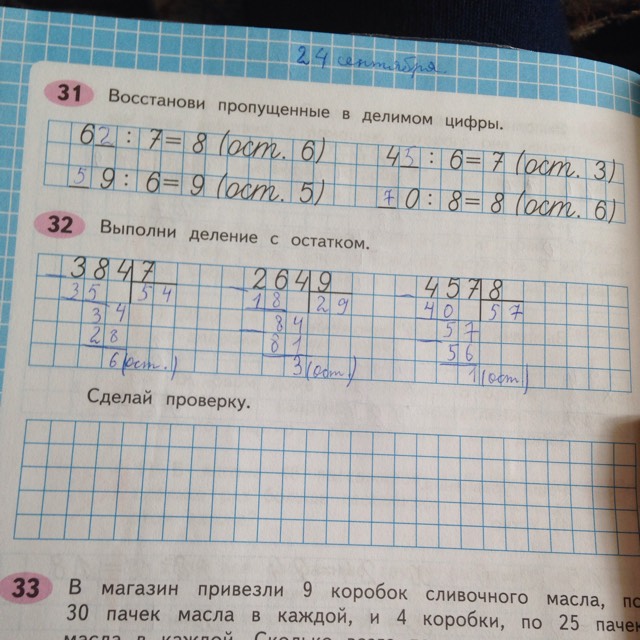 24 сентября
31 Восстанови пропущенные в делимом цифры.
62 : 7 = 8 (ост. 6)
45 : 6 = 7 (ост. 3)
59 : 6 = 9 (ост. 5)
70 : 8 = 8 (ост. 6)
32 Выполни деление с остатком.
384 7 264 9 457 8
35 54 18 29 40 57
34 84 57
28 81 56
6 (ост.) 3 (ост) 1 (ост)
Сделай проверку.
33 В магазин привезли 9 коробок сливочного масла, по
30 пачек масла в каждой, и 4 коробки, по 25 пачек
масла в каждой. Сколько всего